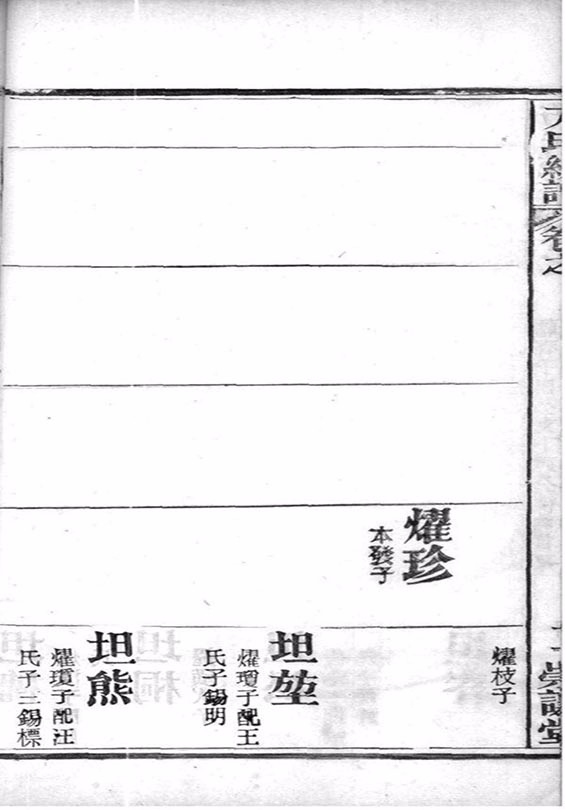 方氏統譜
卷之
崇誼堂
燿珍
本發子
燿枝子
坦堃
燿瓊子配王
氏子錫明
坦熊
燿瓊子配汪
氏子三錫標